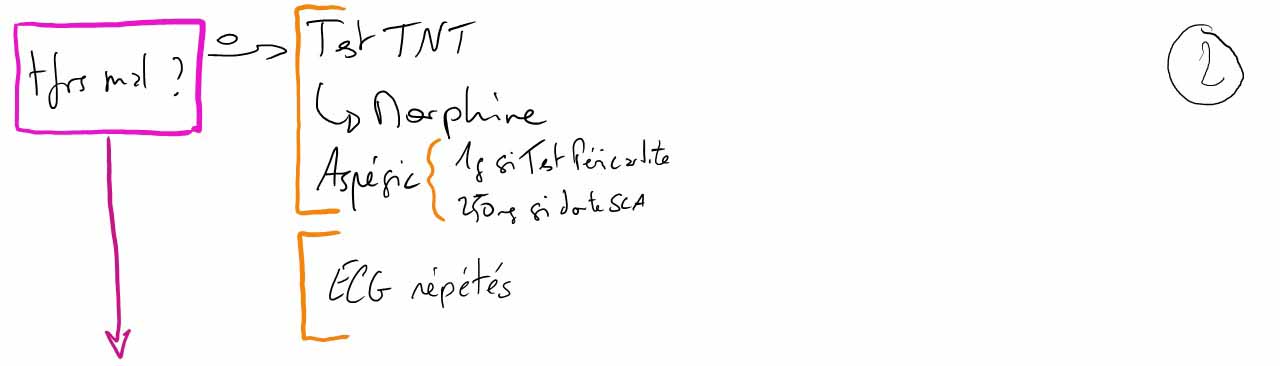 tjrs mal ?
Test TNT
↳ Morphine
Aspégic { 1g si Test Péricardite
250mg si doute SCA
ECG répétés
2